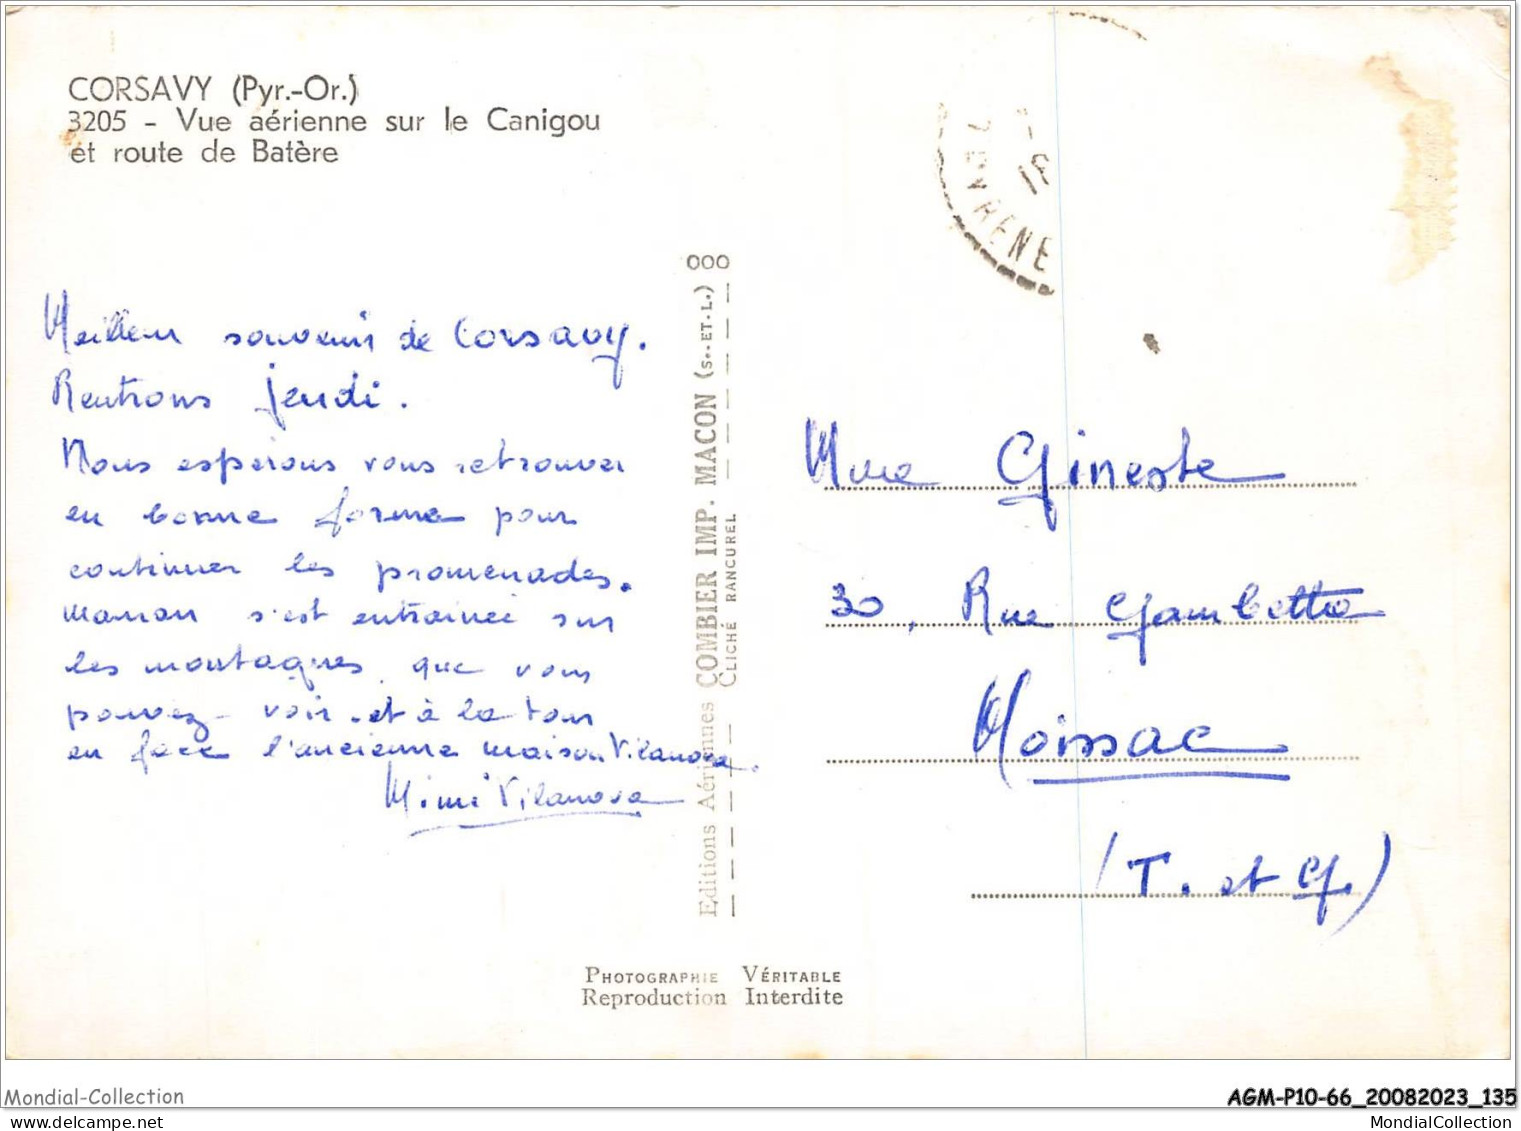 CORSAVY (Pyr.-Or.)
3205 - Vue aérienne sur le Canigou
et route de Batère
Meilleur souvenir de Corsavy.
Rentrons jeudi.
Nous espérons vous retrouver
en bonne forme pour
continuer les promenades.
Maman s'est entrainée sur
les montagnes que vous
pouvez voir et à la tour
en face l'ancienne maison Vilanova.
Mimi Vilanova
000
Editions Aériennes COMBIER IMP. MACON (S.-ET-L.)
CLICHÉ RANCUREL
PHOTOGRAPHIE VÉRITABLE
Reproduction Interdite
Mme Gineste
30, Rue Gambetta
Moissac
(T. et G.)
Mondial-Collection
AGM-P10-66_20082023_135
MondialCollection